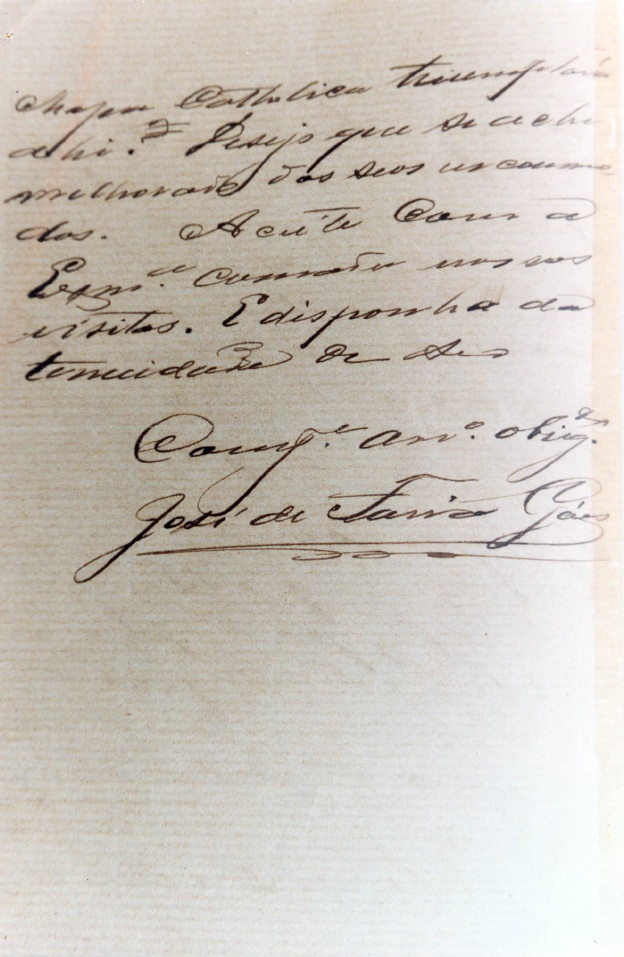 Chapa Catholica triumphará
ahi. Desejo que se ache
melhorado dos seos incommo
dos. Aceite com a
Exm.ª comadre nossas
visitas. E disponha da
tenuidade de seo
Comp.e am.º obrig.do
José de Faria Góes